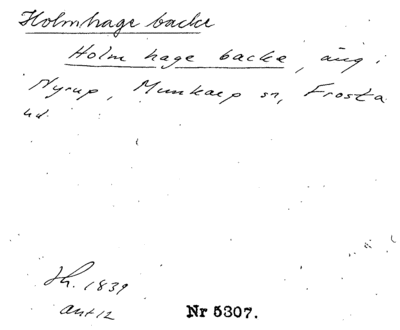 Holmhage backe
Holm hage backe, äng i
Nyrup, Munkarp sn, Frosta
hd.
Sk. 1839
akt 12
Nr 5307.